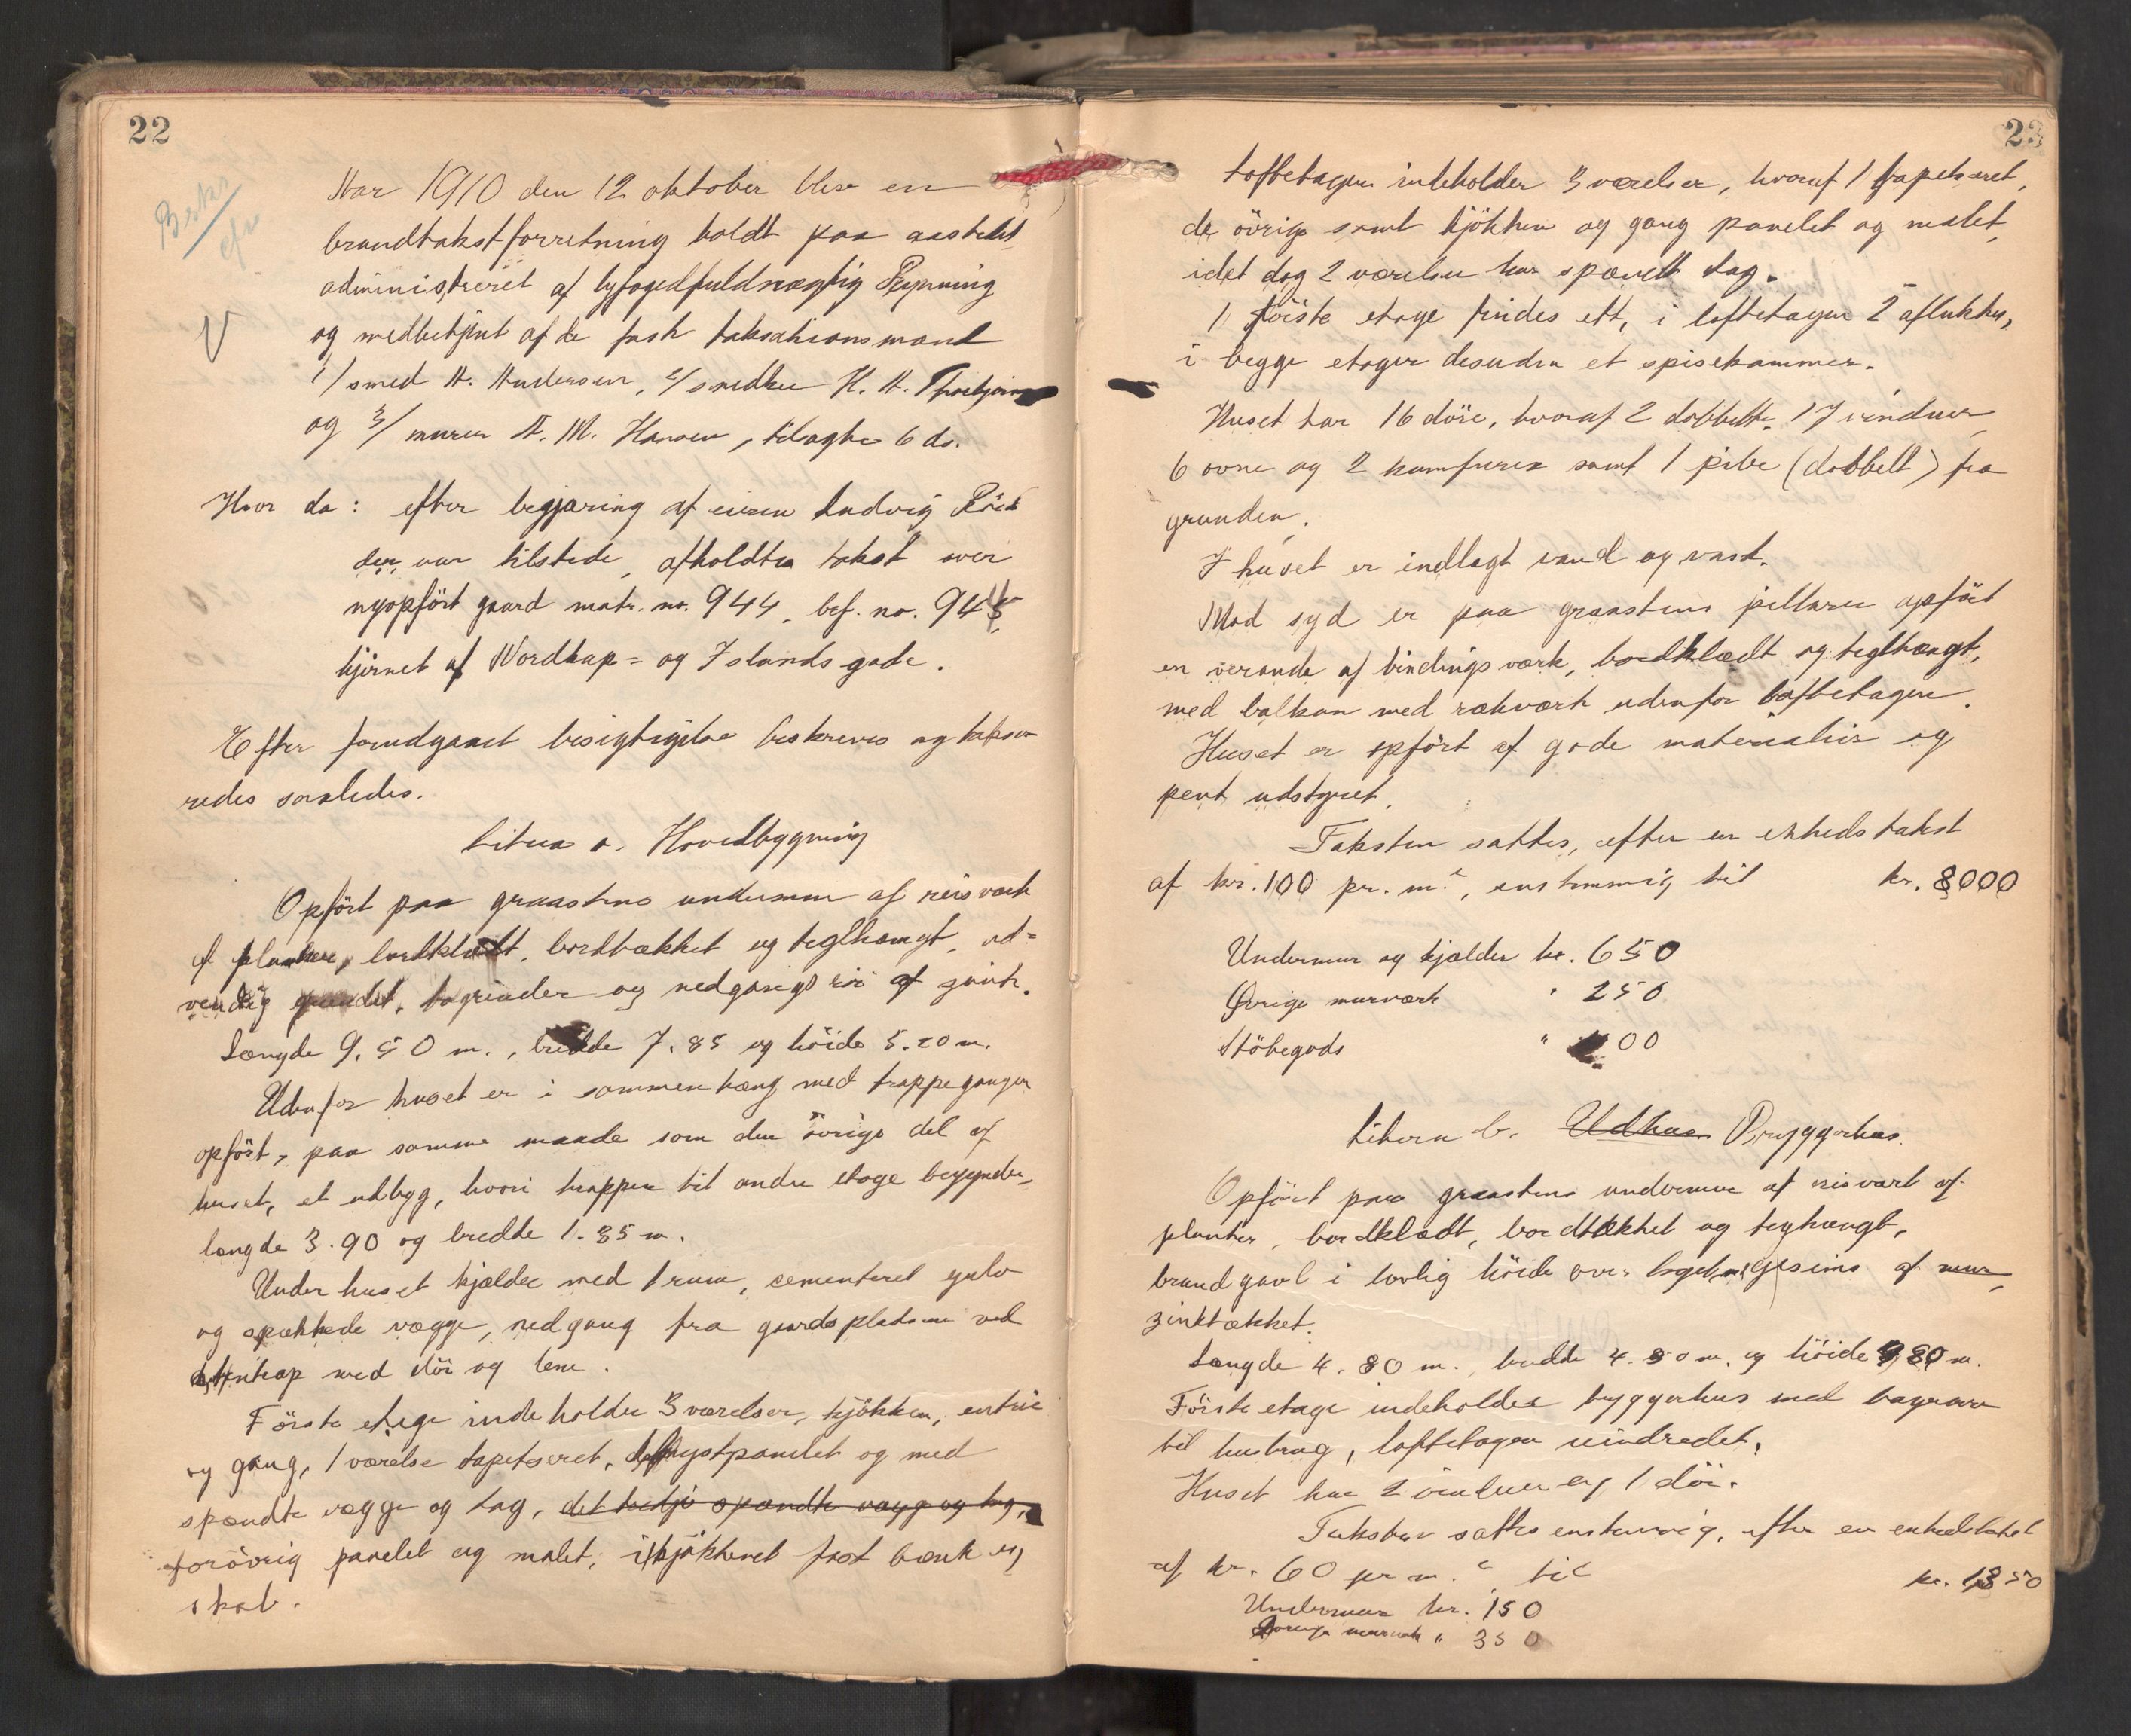 22
Aar 1910 den 12 oktober blev en
brandtakstforretning holdt paa aastedet
administreret af byfogedfuldmægtig Rynning
og medbetjent af de faste taksationsmænd
1/ smed A. Andersen, 2/ snedker H. A. Thorbjørnsen
og 3/ murer A. M. Hansen, tilsagte 6 ds.
Hvor da: efter begjæring af eieren Ludvig
der var tilstede, afholdtes takst over
nyopfört gaard matr. no. 944, bef. no. 944
hjörnet af Nordkap= og Islands gade.
Efter forudgaaet besigtigelse beskreves og takse-
redes saaledes.
Litera a. Hovedbygning
Opfört paa graastens undermur af reisværk
af planker, bordklædt, bordtækket og teglhængt, ud=
vendig grundet, tagrender og nedgangsrör af zink.
Længde 9.50 m., bredde 7.85 og höide 5.20 m.
Udenfor huset er i sammenhæng med trappegangen
opfört, paa samme maade som den övrige del af
huset, et udbygg, hvori trappen til anden etage begynder,
længde 3.90 og bredde 1.35 m.
Under huset kjælder med 1 rum, cementeret gulv
og spækkede vægge, nedgang fra gaardspladsen ved
stentrap med dör og lem.
Förste etage indeholder 3 værelser, kjökken, entrée
og gang, 1 værelse tapetseret, brystpanelet og med
spændte vægge og tag, det tredje spændte vægge og tag,
forövrig panelet og malet; i kjökkenet fast bænk og
skab.
23
Loftetagen indeholder 3 værelser, hvoraf 1 tapetseret,
de övrige samt kjökken og gang panelet og malet,
idet dog 2 værelser har spændt tag.
I förste etage findes ett, i loftetagen 2 aflukker,
i begge etager desuden et spisekammer.
Huset har 16 döre, hvoraf 2 dobbelte, 17 vinduer,
6 ovne og 2 komfurer samt 1 pibe (dobbelt) fra
grunden.
I huset er indlagt vand og vask.
Mod syd er paa graastens pillarer opfört
en veranda af bindingsværk, bordklædt og teglhængt,
med balkon med rækværk udenfor loftetagen.
Huset er opfört af gode materialier og
pent udstyret.
Taksten sattes, efter en enhedstakst
af kr. 100 pr. m.², enstemmig til kr. 8000
Undermur og kjælder kr. 650
Övrige murværk " 250
Stöbegods " 00
Litera b. Udhus Bryggerhus.
Opfört paa graastens undermur af reisværk af
planker, bordklædt, bordtækket og teghængt,
brandgavl i lovlig höide over taget, gesims af mur,
zinktækket.
Længde 4.80 m., bredde 4.50 m. og höide 80 m.
Förste etage indeholder byggerhus med bagerovn
til husbrug, loftetagen uindredet.
Huset har 2 vinduer og 1 dör.
Taksten sattes enstemmig, efter en enhedstakst
af kr. 60 pr m.² til kr. 1350
Undermur kr. 150
Övrige murværk " 350